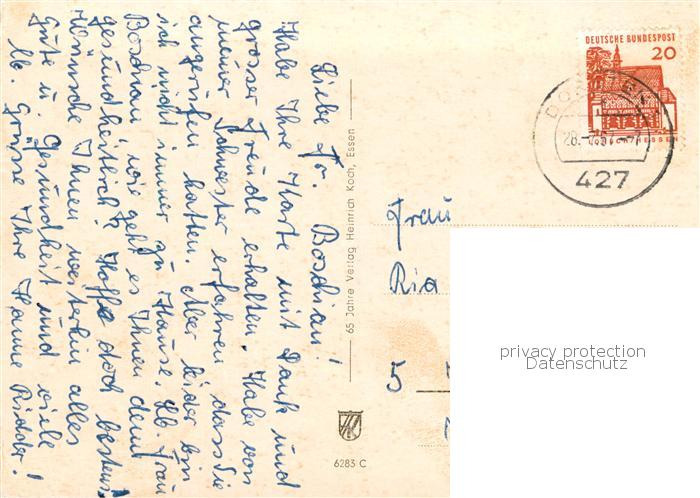 Liebe Fr. Boschian!
Habe Ihre Karte mit Dank und
grosser Freude erhalten. Habe von
meiner Schwester erfahren dass Sie
angerufen hatten. Aber leider bin
ich nicht immer zu Hause. Lb. Frau
Boschian wie geht es Ihnen denn
gesundheitlich? Hoffe doch bestens.
Wünsche Ihnen weiterhin alles
Gute u. Gesundheit und viele
lb. Grüsse Ihre Hanne Ridder!
65 Jahre Verlag Heinrich Koch, Essen
6283 C
DEUTSCHE BUNDESPOST
20
427
Frau
Ria
5
privacy protection
Datenschutz